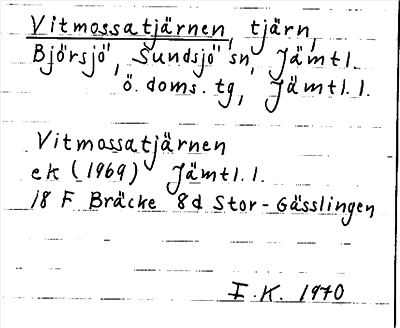 Vitmossatjärnen, tjärn,
Björsjö, Sundsjö sn, Jämtl.
ö. doms. tg, Jämtl. l.
Vitmossatjärnen
ek (1969) Jämtl. l.
18 F Bräcke 8d Stor-Gässlingen
I.K. 1970